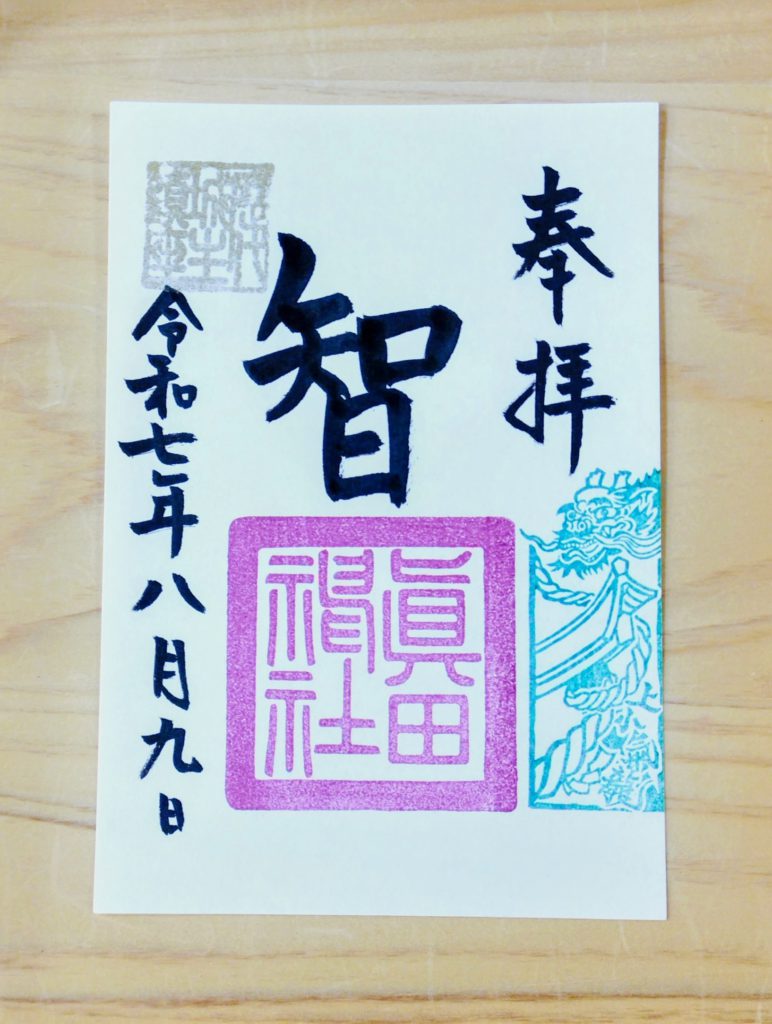 奉拝
智
眞田神社
令和七年八月九日